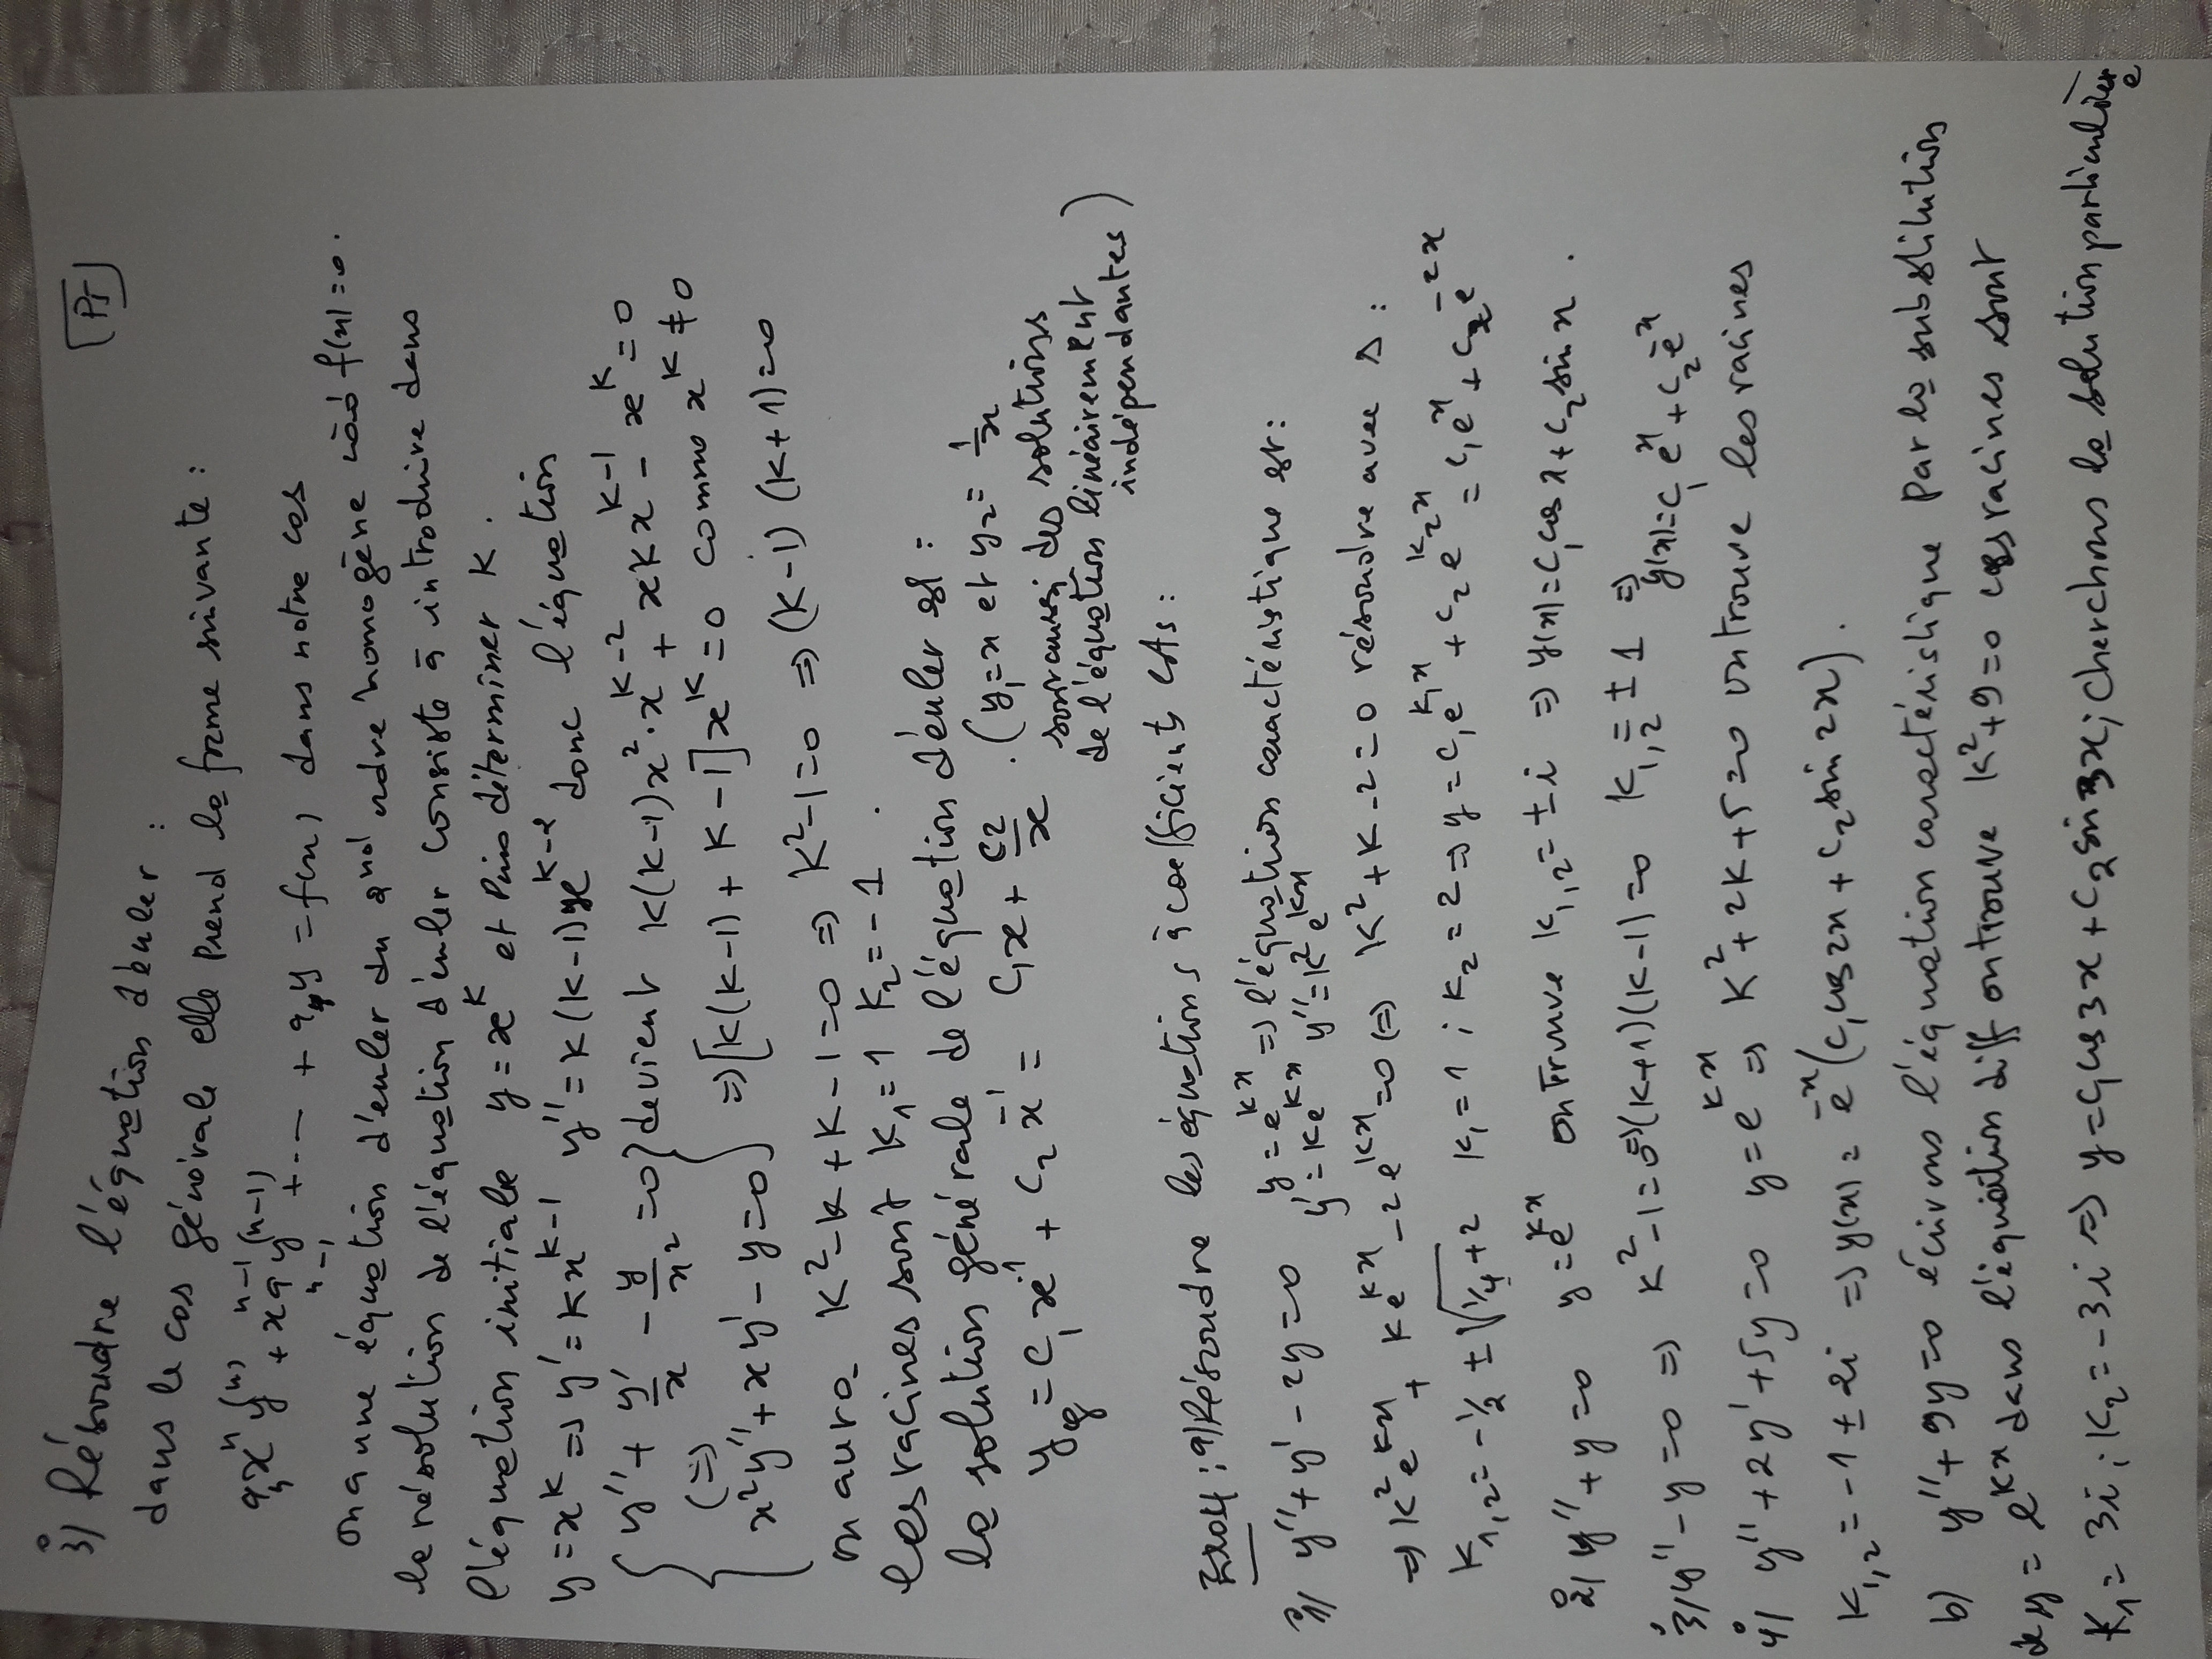 P5
3°/ Résoudre l'équation d'euler :
dans le cas générale elle prend la forme suivante :
aₙxⁿy⁽ⁿ⁾ + xⁿ⁻¹aₙ₋₁y⁽ⁿ⁻¹⁾ + ... + a₀y = f(x) dans notre cas
on a une équation d'euler du 2nd ordre homogène f(x) = 0.
la résolution de l'équation d'euler consiste à introduire dans
l'équation initiale y = xᵏ et puis déterminer K.
y = xᵏ => y' = Kxᵏ⁻¹ y'' = K(K-1)xᵏ⁻² donc l'équation
{ y'' + y'/x - y/x² = 0 } devient K(K-1)x²·xᵏ⁻² + xKxᵏ⁻¹ - xᵏ = 0
(=)
x²y'' + xy' - y = 0 } => [K(K-1) + K - 1]xᵏ = 0 comme xᵏ ≠ 0
on aura K² - K + K - 1 = 0 => K² - 1 = 0 => (K-1)(K+1) = 0
les racines sont K₁ = 1 K₂ = -1.
la solution générale de l'équation d'euler est :
y_g = C₁x¹ + C₂x⁻¹ = C₁x + C₂/x . (y₁ = x et y₂ = 1/x
sont aussi des solutions
de l'équation linéairement
indépendantes)
Exo4 : a) Résoudre les équations à coefficients cts :
1°/ y'' + y' - 2y = 0 y = eᵏˣ => l'équation caractéristique est :
y' = Keᵏˣ y'' = K²eᵏˣ
=> K²eᵏˣ + Keᵏˣ - 2eᵏˣ = 0 (=) K² + K - 2 = 0 résoudre avec Δ :
K₁,₂ = -1/2 ± √(1/4 + 2) K₁ = 1 ; K₂ = 2 => y = C₁eᴷ₁ˣ + C₂eᴷ₂ˣ = C₁eˣ + C₂e⁻²ˣ
2°/ y'' + y = 0 y = eᵏˣ on trouve K₁,₂ = ± i => y(x) = C₁cos x + C₂ sin x.
3°/ y'' - y = 0 => K² - 1 = 0 => (K+1)(K-1) = 0 K₁,₂ = ± 1 =>
y(x) = C₁eˣ + C₂e⁻ˣ
4°/ y'' + 2y' + 5y = 0 y = eᵏˣ => K² + 2K + 5 = 0 on trouve les racines
K₁,₂ = -1 ± 2i => y(x) = e⁻ˣ(C₁cos2x + C₂ sin 2x).
b) y'' + 9y = 0 écrivons l'équation caractéristique par la substitution
de y = eᵏˣ dans l'équation diff on trouve K² + 9 = 0 ces racines sont
K₁ = 3i ; K₂ = -3i => y = C₁cos3x + C₂ sin3x ; cherchons la solution particulière